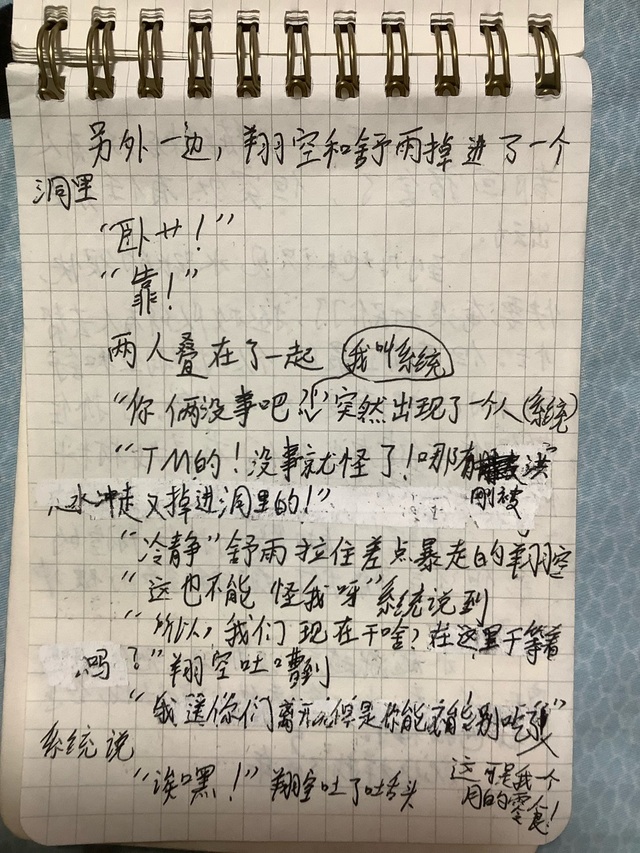 另外一边，翔空和舒雨掉进了一个
洞里
“卧艹！”
“靠！”
两人叠在了一起
我叫系统
“你俩没事吧”突然出现了一个人（系统）
“TM的！没事就怪了！哪有刚被洪
水冲走又掉进洞里的！”
“冷静”舒雨拉住差点暴走的翔空
“这也不能怪我呀”系统说到
“所以，我们现在干啥？在这里干等着
吗？”翔空吐嘈到
“我送你们离开但是你能不能别吃了”
系统说
“诶嘿！”翔空吐了吐舌头
这可是我一个
月的零食！